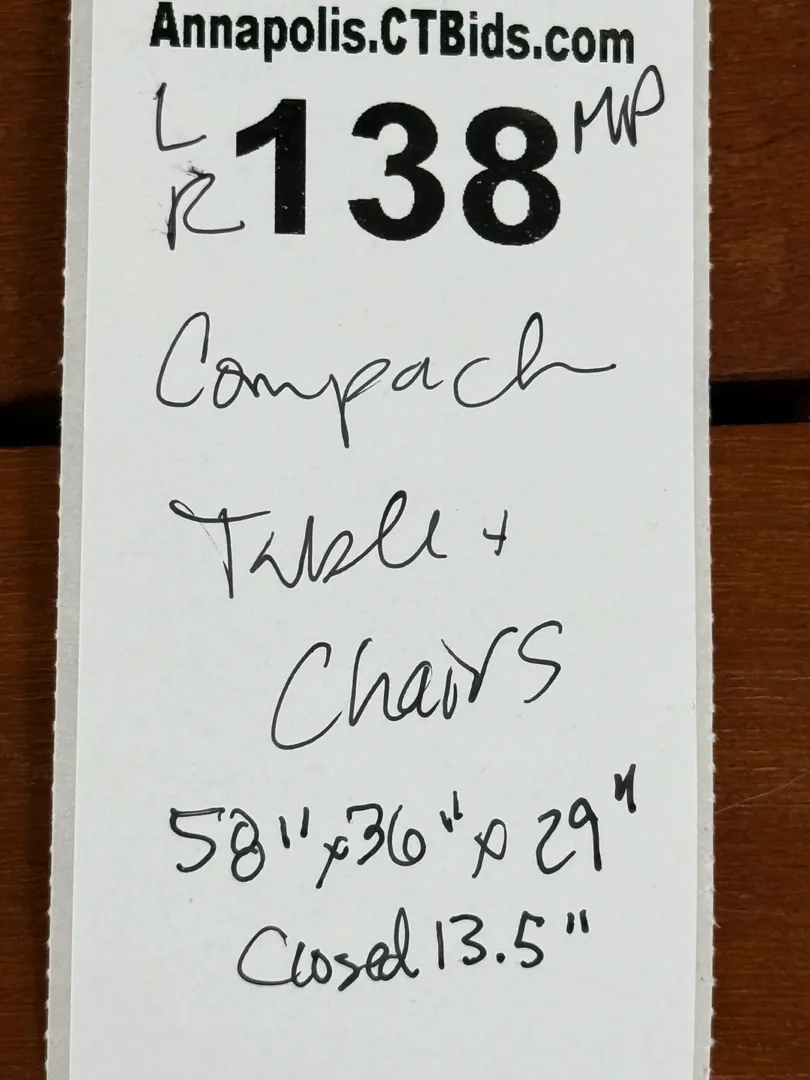 Annapolis.CTBids.com
L
R 138 MWP
Compact
Table +
Chairs
58" x 36" x 29"
Closed 13.5"